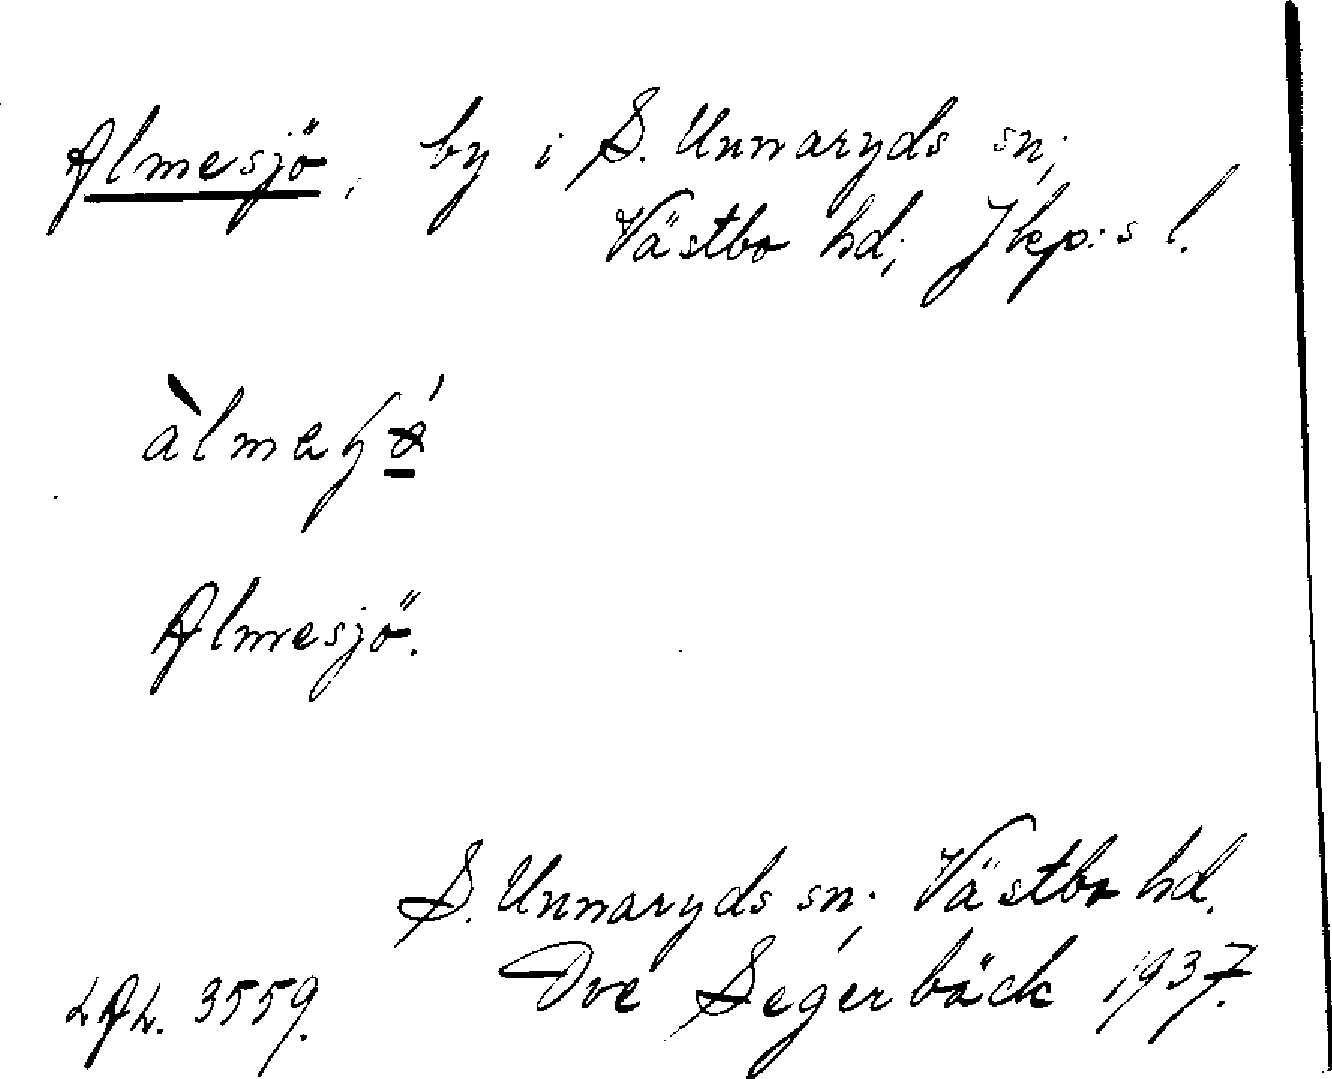 Almesjö, by i S. Unnaryds sn;
Västbo hd; Jkp:s l.
Almesjö.
S. Unnaryds sn; Västbo hd.
LAL. 3559. Ove Segerbäck 1937.